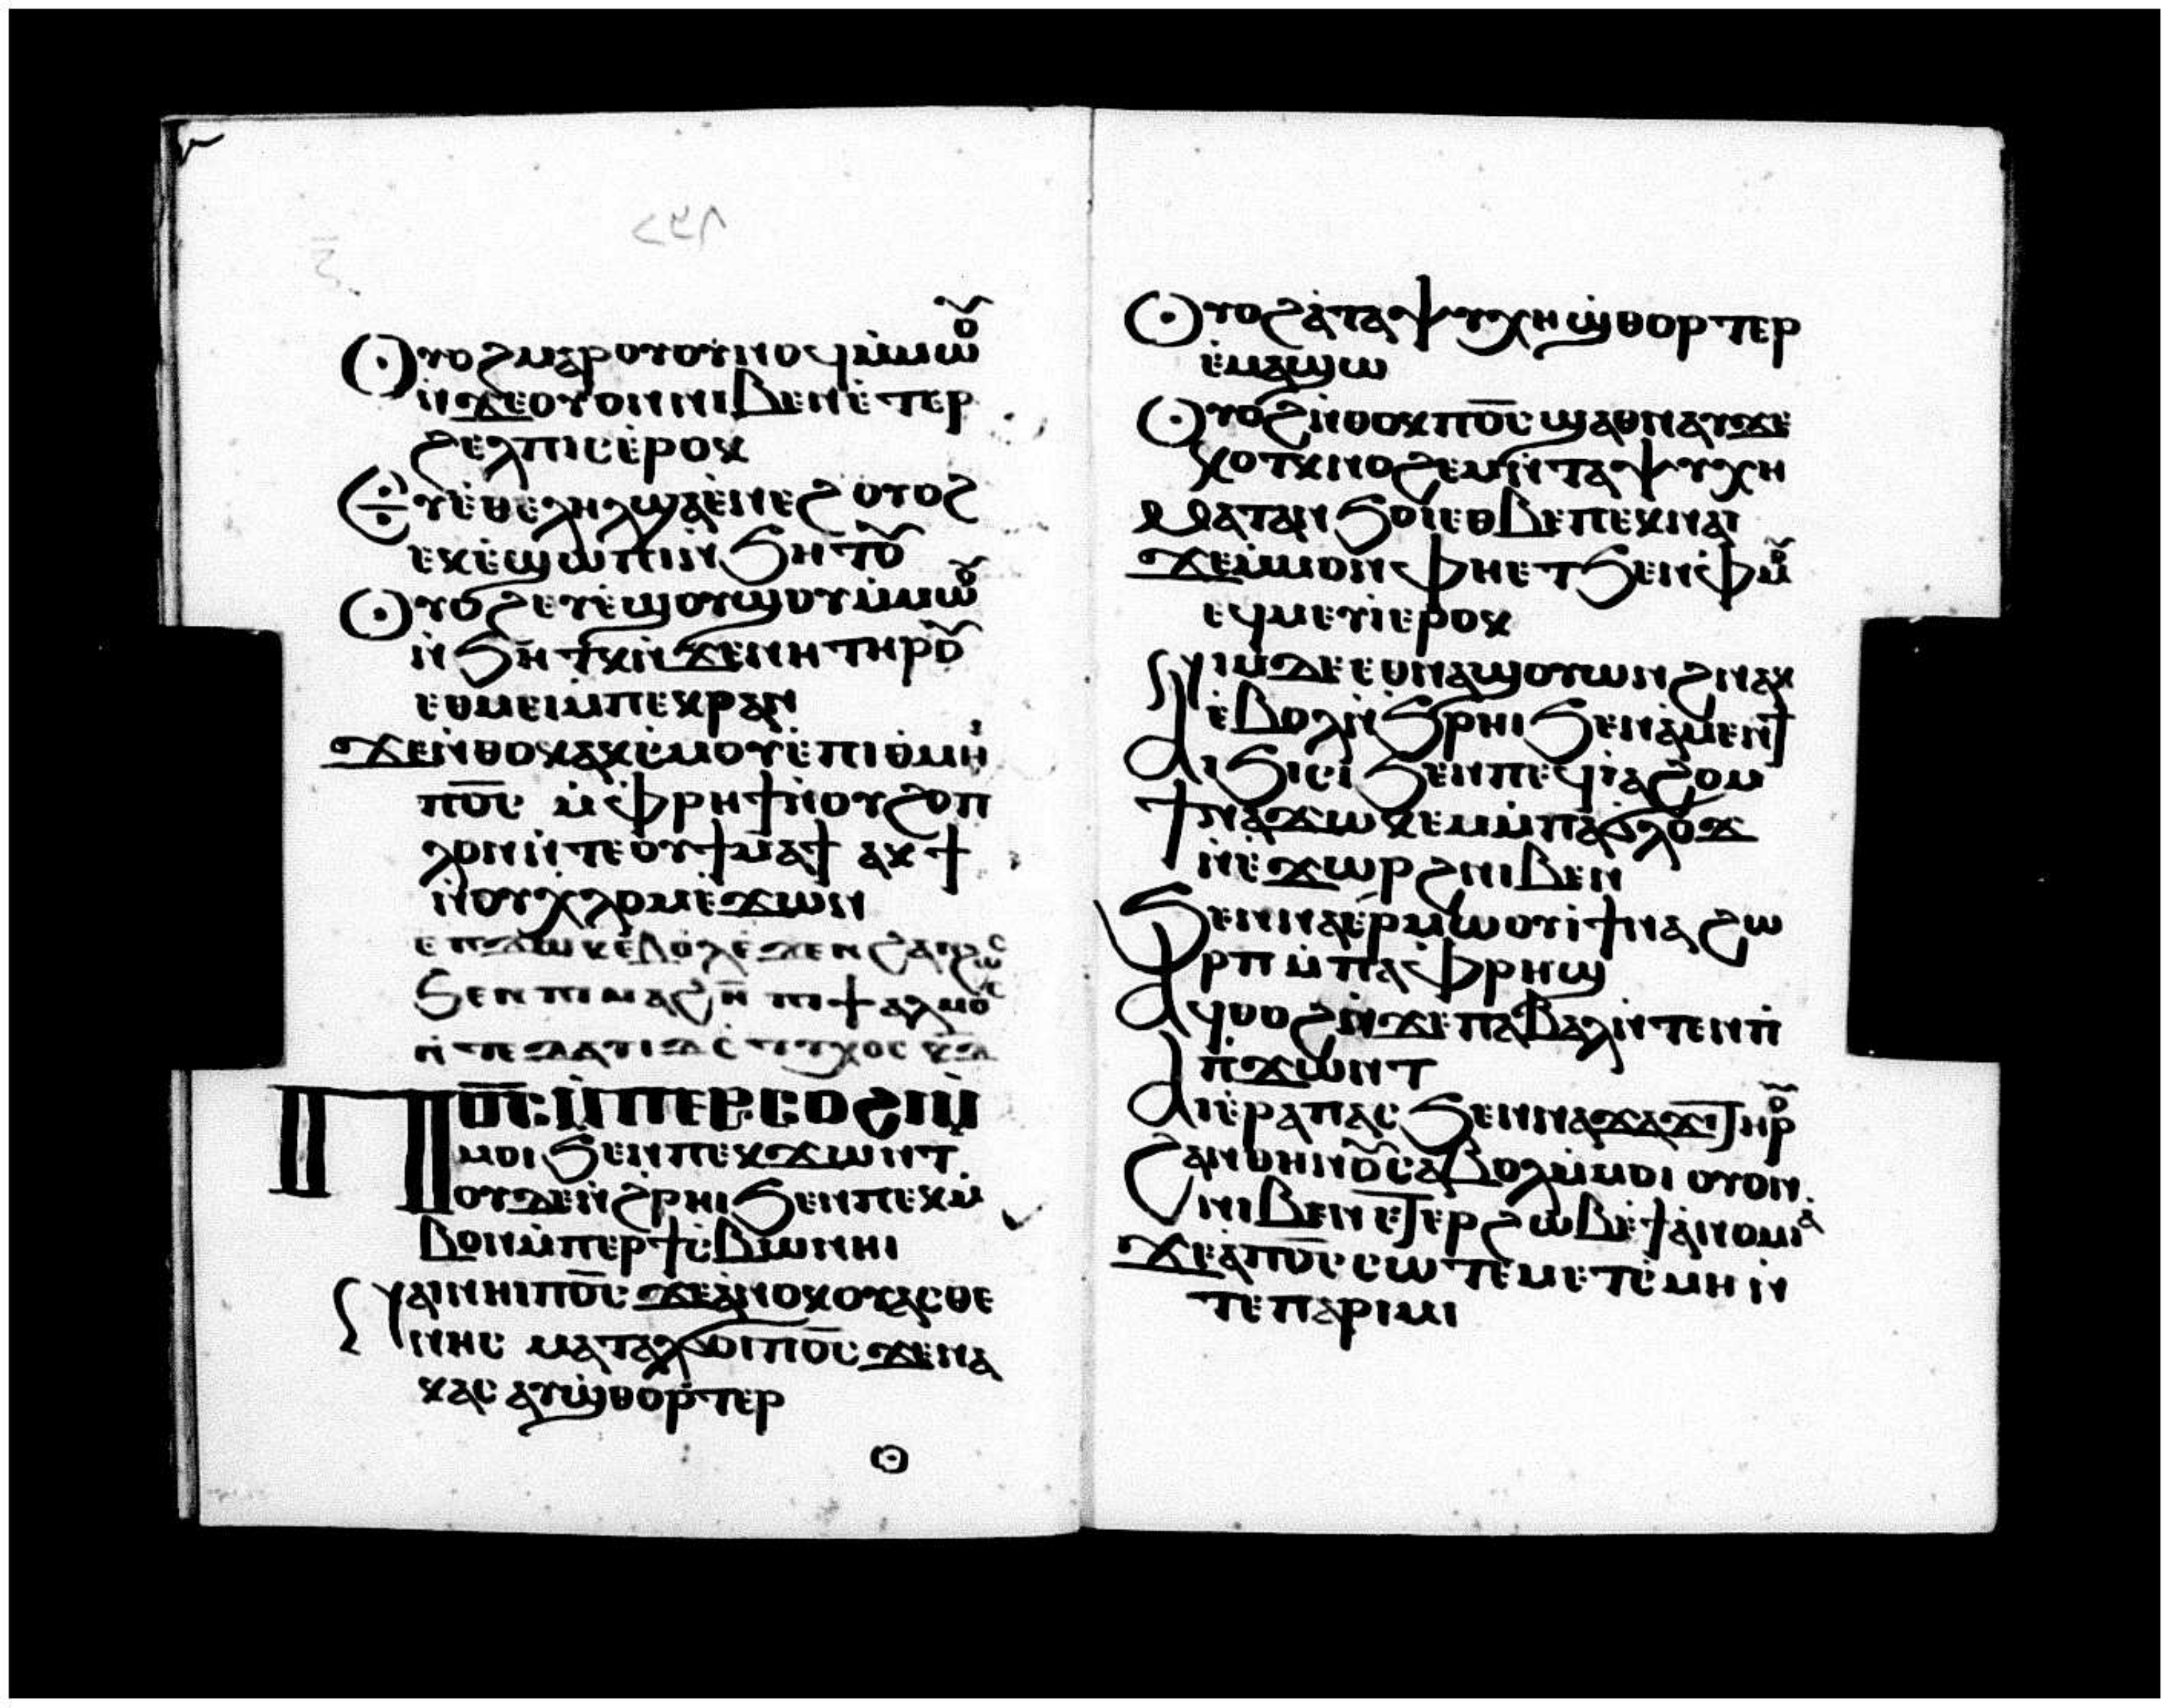 Ⲟⲩⲟϩ ⲙⲁⲣⲟⲩⲟⲩⲛⲟϥ ⲙ̀ⲙⲱⲟⲩ
ⲛ̀ϫⲉ ⲟⲩⲟⲛ ⲛⲓⲃⲉⲛ ⲉ̀ⲧⲉⲣ
ϩⲉⲗⲡⲓⲥ ⲉ̀ⲣⲟⲕ
Ⲉⲩⲉ̀ⲑⲉⲗⲏⲗ ϣⲁ ⲉ̀ⲛⲉϩ ⲟⲩⲟϩ
ⲉⲕⲉ̀ϣⲱⲡⲓ ⲛ̀ϧⲏⲧⲟⲩ
Ⲟⲩⲟϩ ⲉⲩⲉ̀ϣⲟⲩϣⲟⲩ ⲙ̀ⲙⲱⲟⲩ
ⲛ̀ϧⲏⲧⲕ ⲛ̀ϫⲉ ⲛⲏ ⲧⲏⲣⲟⲩ
ⲉⲑⲙⲉⲓ ⲙ̀ⲡⲉⲕⲣⲁⲛ
Ϫⲉ ⲛ̀ⲑⲟⲕ ⲁⲕⲥ̀ⲙⲟⲩ ⲉ̀ⲡⲓⲑⲙⲏⲓ
ⲡ̅ⲟ̅ⲥ̅ ⲙ̀ⲫⲣⲏϯ ⲛ̀ⲟⲩϩⲟⲡ
ⲗⲟⲛ ⲛ̀ⲧⲉ ⲟⲩϯⲙⲁϯ ⲁⲕϯ
ⲛ̀ⲟⲩⲭⲗⲟⲙ ⲉ̀ϫⲱⲛ
ⲉⲡϫⲱⲕ ⲉ̀ⲃⲟⲗ ϧⲉⲛ ϩⲁⲛϩⲱⲥ
ϧⲉⲛ ⲡⲓⲙⲁϩⲏ̅ ⲡⲓⲯⲁⲗⲙⲟⲥ
ⲛ̀ⲧⲉ ⲇⲁⲩⲓⲇ ⲥⲧⲩⲭⲟⲥ ⲕ̅ⲁ̅
Ⲡ̅ⲟ̅ⲥ̅ ⲙ̀ⲡⲉⲣⲥⲟϩⲓ ⲙ̀
ⲙⲟⲓ ϧⲉⲛ ⲡⲉⲕϫⲱⲛⲧ
ⲟⲩⲇⲉ ⲛ̀ϩ̀ⲣⲏⲓ ϧⲉⲛ ⲡⲉⲕⲙ̀
ⲃⲟⲛ ⲙ̀ⲡⲉⲣϯⲥ̀ⲃⲱ ⲛⲏⲓ
Ⲛⲁⲓ ⲛⲏⲓ ⲡ̅ⲟ̅ⲥ̅ ϫⲉ ⲁ̀ⲛⲟⲕ ⲟⲩⲁⲥⲑⲉ
ⲛⲏⲥ ⲙⲁⲧⲁⲗϭⲟⲓ ⲡ̅ⲟ̅ⲥ̅ ϫⲉ ⲛⲁ
ⲕⲁⲥ ⲁⲩϣ̀ⲑⲟⲣⲧⲉⲣ
Ⲟⲩⲟϩ ⲁ̀ ⲧⲁⲯⲩⲭⲏ ϣ̀ⲑⲟⲣⲧⲉⲣ
ⲉ̀ⲙⲁϣⲱ
Ⲟⲩⲟϩ ⲛ̀ⲑⲟⲕ ⲡ̅ⲟ̅ⲥ̅ ϣⲁ ⲑⲛⲁⲩ ϫⲉ
ⲕⲟⲧⲕ ⲛⲟϩⲉⲙ ⲛ̀ⲧⲁⲯⲩⲭⲏ
Ⲙⲁⲧⲁⲛϧⲟⲓ ⲉⲑⲃⲉ ⲡⲉⲕⲛⲁⲓ
Ϫⲉ ⲙ̀ⲙⲟⲛ ⲫⲏⲉⲧϧⲉⲛ ⲫⲙⲟⲩ
ⲉϥⲙⲉⲩⲓ ⲉⲣⲟⲕ
Ⲛⲓⲙ ⲇⲉ ⲉⲑⲛⲁϣⲟⲩⲱⲛϩ ⲛⲁⲕ
ⲉ̀ⲃⲟⲗ ⲛ̀ϧⲣⲏⲓ ϧⲉⲛ ⲁ̀ⲙⲉⲛϯ
Ⲁⲓϧⲓⲥⲓ ϧⲉⲛ ⲡⲉϥⲓⲁϩⲟⲙ
Ϯⲛⲁϫⲱⲕⲉⲙ ⲙ̀ⲡⲁϭⲗⲟϫ
ⲛ̀ⲉ̀ϫⲱⲣϩ ⲛⲓⲃⲉⲛ
Ϧⲉⲛ ⲛⲁⲉⲣⲙⲱⲟⲩⲓ ϯⲛⲁϩⲱ
ⲣⲡ ⲙ̀ⲡⲁⲫⲣⲏϣ
Ⲁϥⲑⲟϩ ⲛ̀ϫⲉ ⲡⲁⲃⲁⲗ ⲛ̀ⲧⲉⲛ ⲡ̀
ⲡ̀ϫⲱⲛⲧ
Ⲁⲓⲉ̀ⲣⲁⲡⲁⲥ ϧⲉⲛ ⲛⲁϫⲁϫⲓ ⲧⲏⲣⲟⲩ
Ϩⲁⲛⲑⲏⲛⲟⲩ ⲥⲁⲃⲟⲗ ⲙ̀ⲙⲟⲓ ⲟⲩⲟⲛ
ⲛⲓⲃⲉⲛ ⲉⲧⲉⲣϩⲱⲃ ⲉ̀ϯⲁ̀ⲛⲟⲙⲓⲁ̀
Ϫⲉ ⲁ̀ ⲡ̅ⲟ̅ⲥ̅ ⲥⲱⲧⲉⲙ ⲉⲧⲥ̀ⲙⲏ ⲛ̀
ⲧⲉ ⲡⲁⲣⲓⲙⲓ